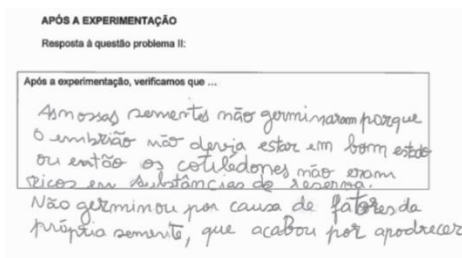 APÓS A EXPERIMENTAÇÃO
Resposta à questão problema II:
Após a experimentação, verificamos que ...
As nossas sementes não germinaram porque
o embrião não devia estar em bom estado
ou então os cotilédones não eram
ricos em substâncias de reserva.
Não germinou por causa de fatores da
própria semente, que acabou por apodrecer